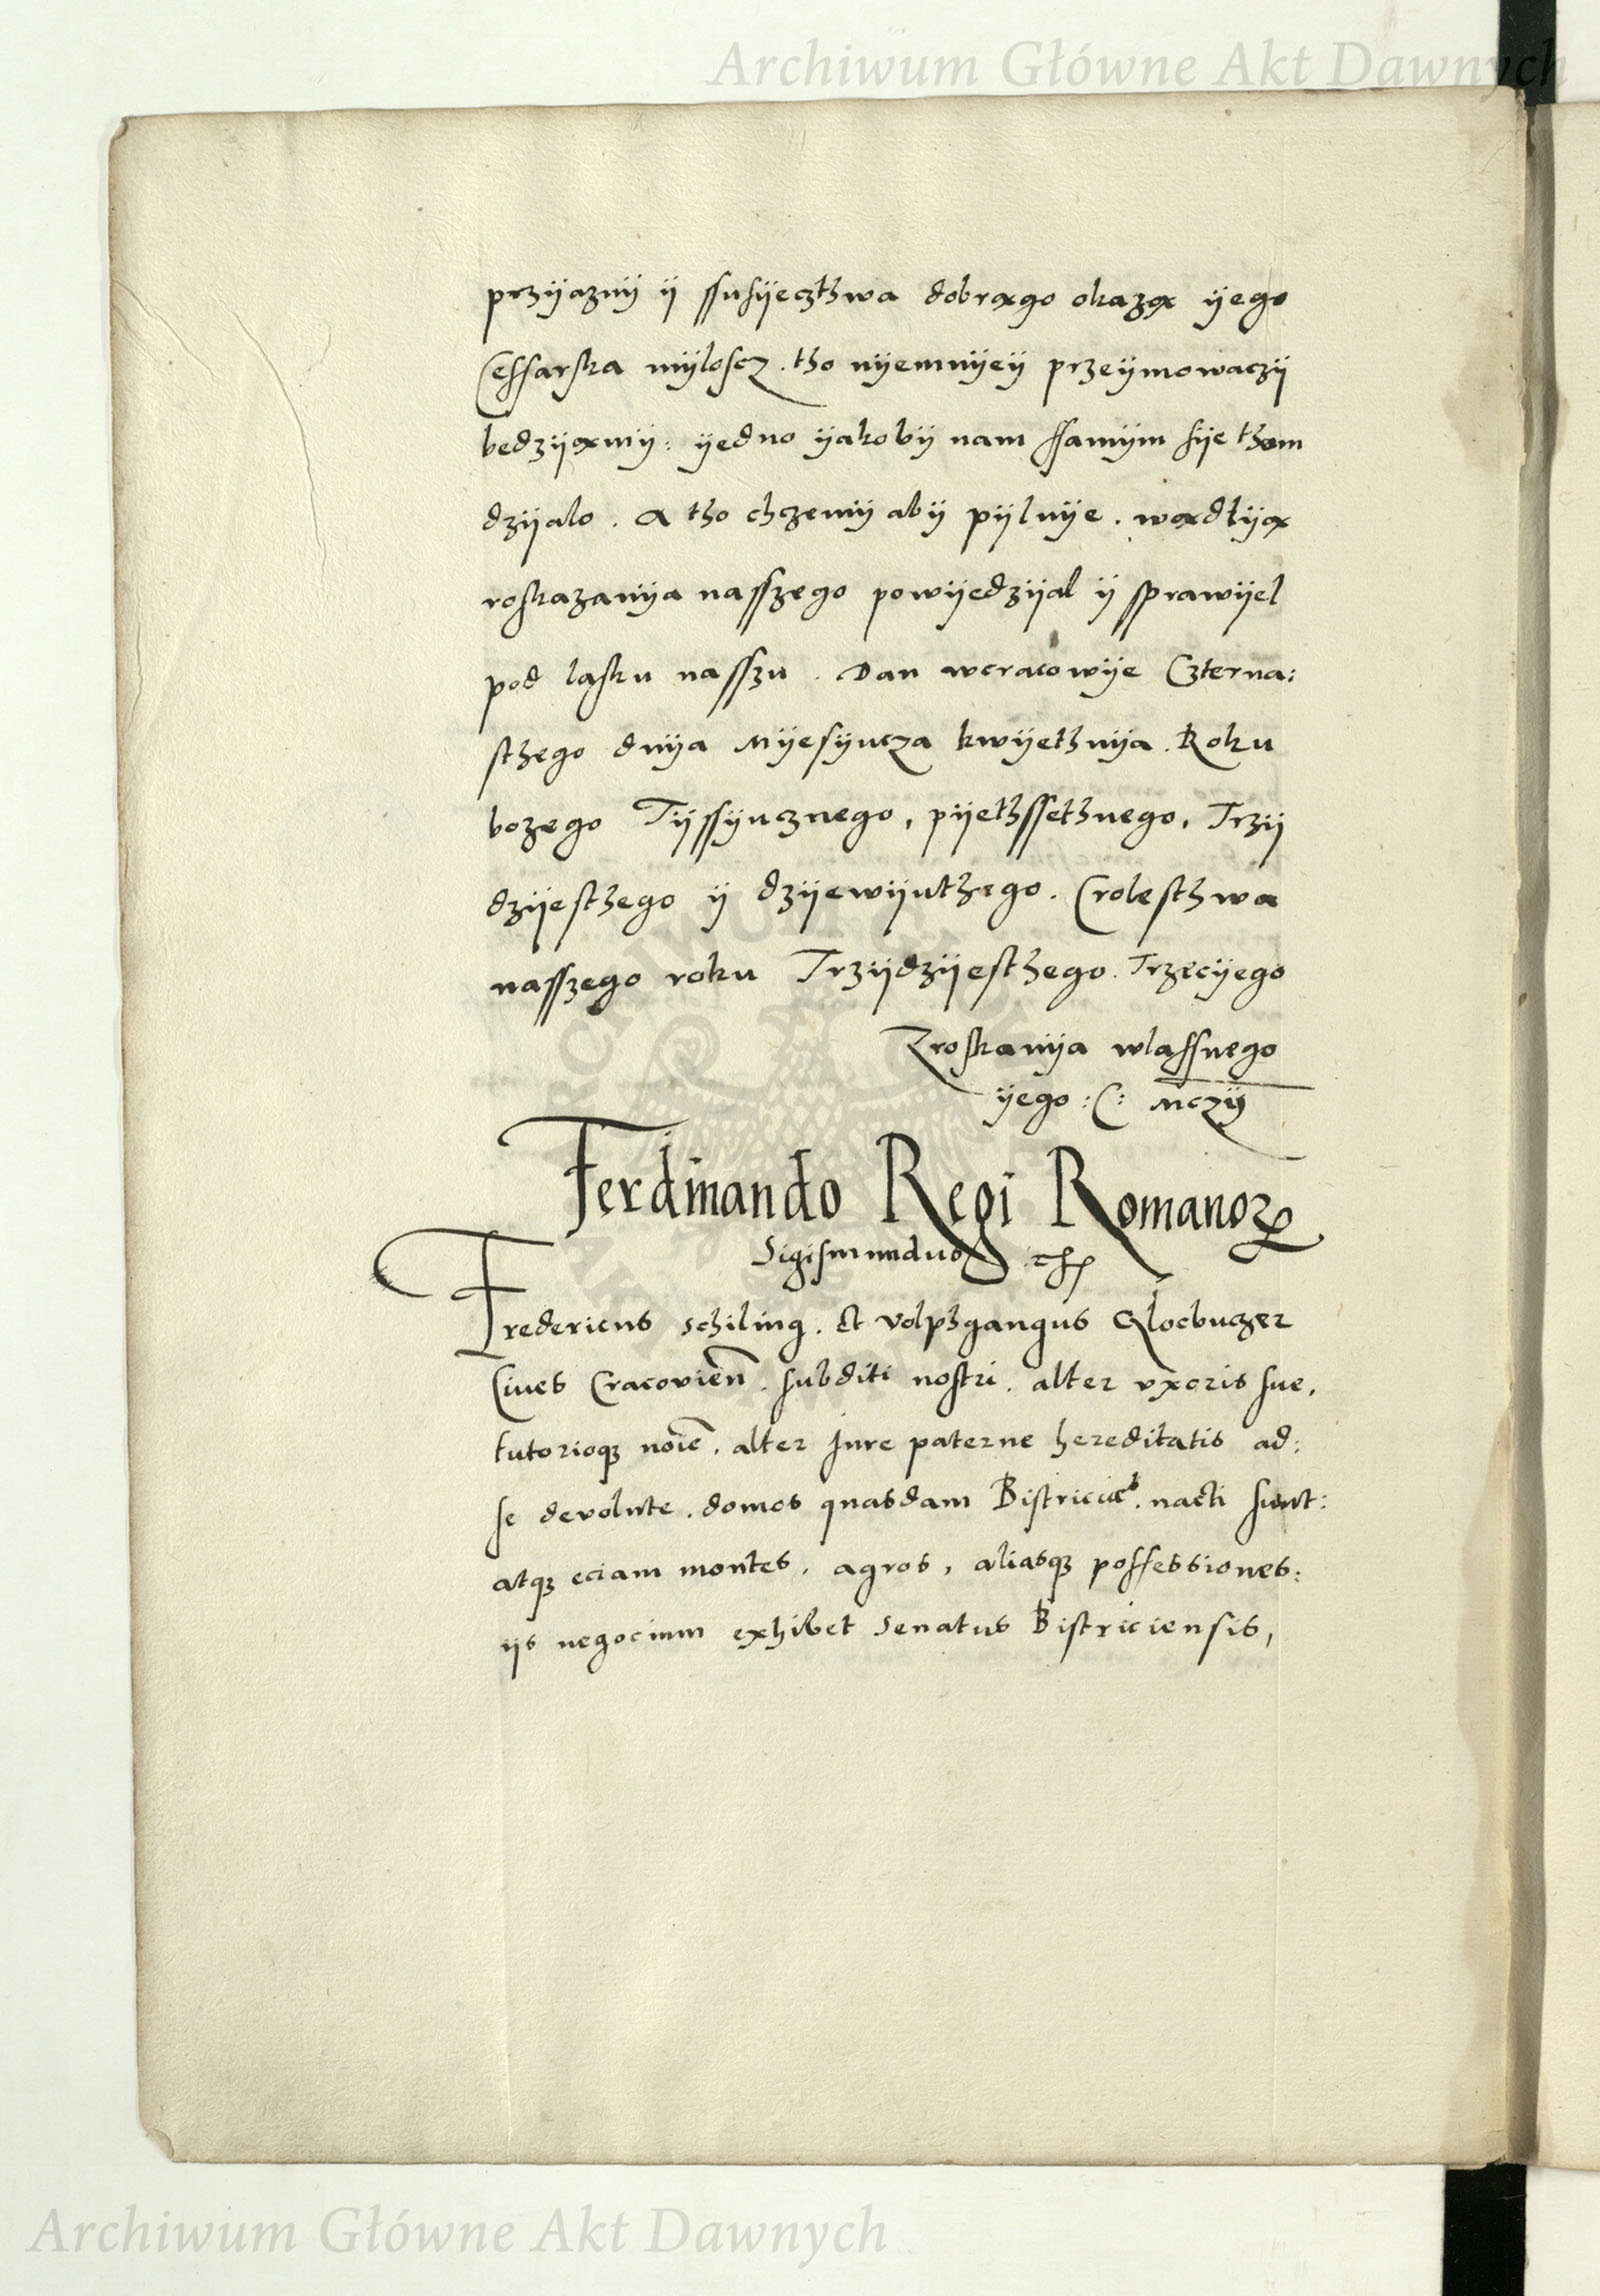 Archiwum Główne Akt Dawnych
przÿaznÿ ÿ ssusÿeczthwa dobrego okaze ÿego
Cessarska mÿloscz. tho nÿemnÿeÿ przeÿmowaczÿ
bedzÿemÿ: ÿedno ÿakobÿ nam ssamÿm sÿe thom
dzÿalo. A tho chczemÿ abÿ pÿlnÿe. wedlÿe
roskazanÿa nasszego powÿedzÿal ÿ sprawÿel
pod lasku nasszu. Dan wcracowÿe Czterna:
sthego dnÿa Mÿesÿucza kwÿethnÿa. Roku
bozego Tÿssÿucznego, pÿethssethnego, Trzÿ
dzÿesthego ÿ dzÿewÿuthego. Crolesthwa
nasszego roku Trzÿdzÿesthego. Trzecÿego
Zroskanÿa wlassnego
ÿego: C: Mczÿ
Ferdinando Regi Romanoꝝ
Sigismundus
Fredericus Schiling. Et Volphgangus Glocbuczer
Cives Cracovien̄. subditi nostri. alter vxoris sue,
tutorioqꝫ noīe. alter Jure paterne hereditatis ad:
se devolute. domos quasdam nacti sunt:
atqꝫ eciam montes, agros, aliasqꝫ possessiones:
ijs negocium exhibet Senatus Bistriciensis,
Archiwum Główne Akt Dawnych